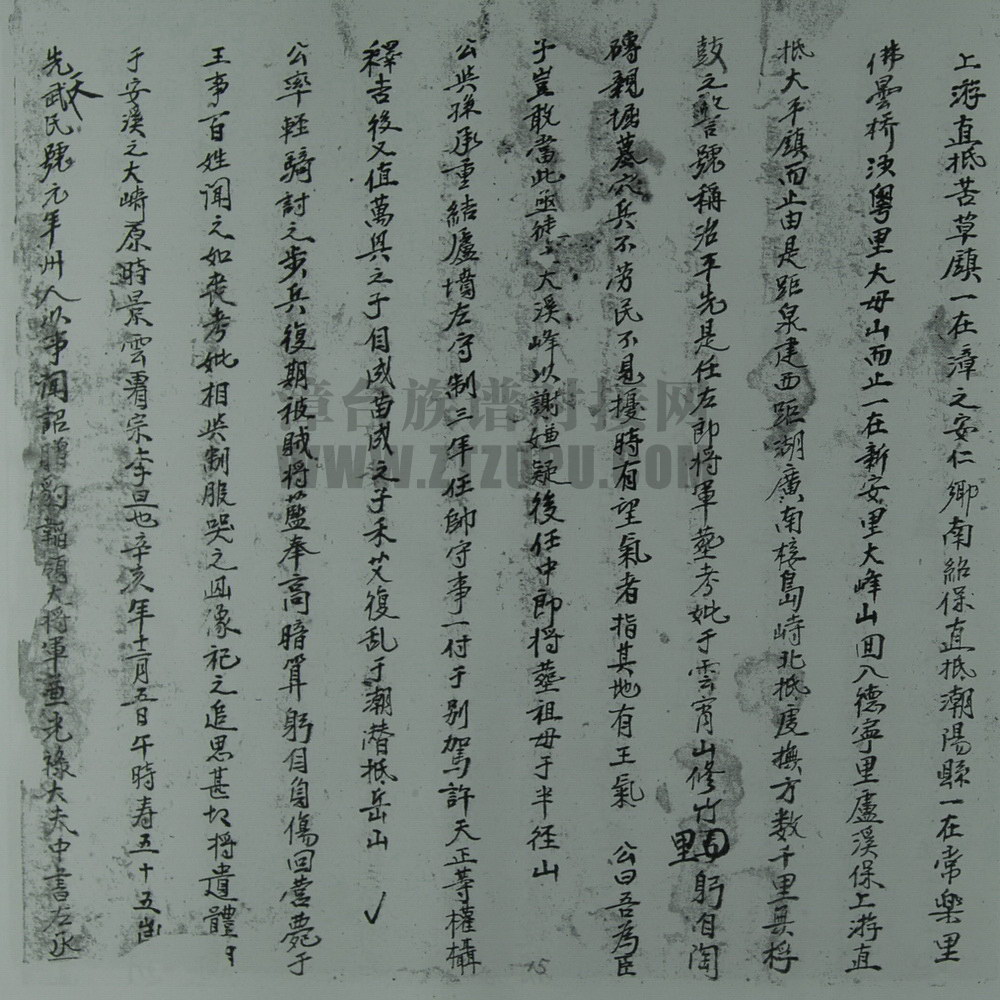 上游直抵苦草鎮一在漳之安仁鄉南紹保直抵潮陽縣一在常樂里
佛曇桥浃粤里大母山而止一在新安里大峰山囬入德寧里盧溪保上游直
抵大平鎮而止由是距泉建西距湖廣南椄島峙北抵虔撫方数千里無桴
鼓之警號稱治平先是任左郎將軍塟考妣于雲霄山修竹里 躬自陶
磚親堀墓穴兵不劳民不見擾時有望氣者指其地有王氣 公曰吾為臣
子豈敢當此亟徙大溪峰以謝嫌疑後任中郎将塟祖母于半径山
公與孫承重結廬墳左守制三年任帥守事一付于别駕許天正等權攝
釋吉後又值萬與之子自成苗成之子禾艾復乱于潮潜抵岳山
公率軽騎討之步兵復期被賊将藍奉高暗算躬自身傷回营薨于
王事百姓闻之如丧考妣相與制服哭之 像祀之追思甚切将遺體
于安溪之大峙原時景雲睿宗李旦也辛亥年十二月五日午時寿五十五歲
先天 武氏號元年州人以事闻詔贈豹韜領大将軍兼光祿大夫中書左丞
章台族谱对接网
WWW.ZTZUPU.COM
15